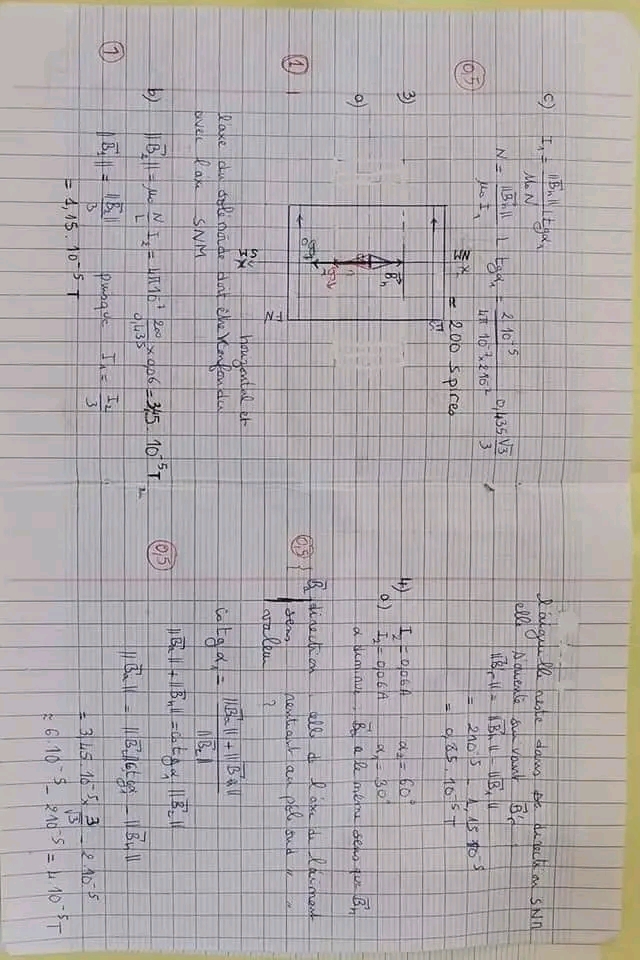 c) I₁ = ||B⃗h|| L tgα₁ / μ₀ N
N = ||B⃗h|| L tgα₁ / μ₀ I₁ = 2 10⁻⁵ 0,435 √3 / 4π 10⁻⁷ × 2 10⁻² 3
0,5
≈ 200 spires
3)
a)
B⃗h
1
l'axe du solénoïde doit être horizontal et
confondu
avec l'axe SNM
b) ||B⃗₂|| = μ₀ N/L I₂ = 4π 10⁻⁷ 200/0,435 × 0,06 = 3,45 . 10⁻⁵ T
1
||B⃗₁|| = ||B⃗₂||/3 puisque I₁ = I₂/3
= 1,15 . 10⁻⁵ T
l'aiguille reste dans sa direction SNM
elle s'oriente suivant B⃗r
||B⃗r|| = ||B⃗h|| - ||B⃗₁||
= 2 10⁻⁵ - 1,15 10⁻⁵
= 0,85 . 10⁻⁵ T
4)
a) I₂ = 0,06A α₂ = 60°
I₂ = 0,06A α₁ = 30°
α diminue, B⃗a a le même sens que B⃗h
0,5
B⃗a direction : celle de l'axe de l'aimant
sens rentrant au pôle sud " "
valeur ?
cotgα₁ = ||B⃗a|| + ||B⃗h|| / ||B⃗₂||
||B⃗a|| + ||B⃗h|| = cotgα₁ ||B⃗₂||
0,5
||B⃗a|| = ||B⃗₂|| cotgα₁ - ||B⃗h||
= 3,45 . 10⁻⁵ × 3/√3 - 2 . 10⁻⁵
≈ 6 . 10⁻⁵ - 2 10⁻⁵ = 4 . 10⁻⁵ T